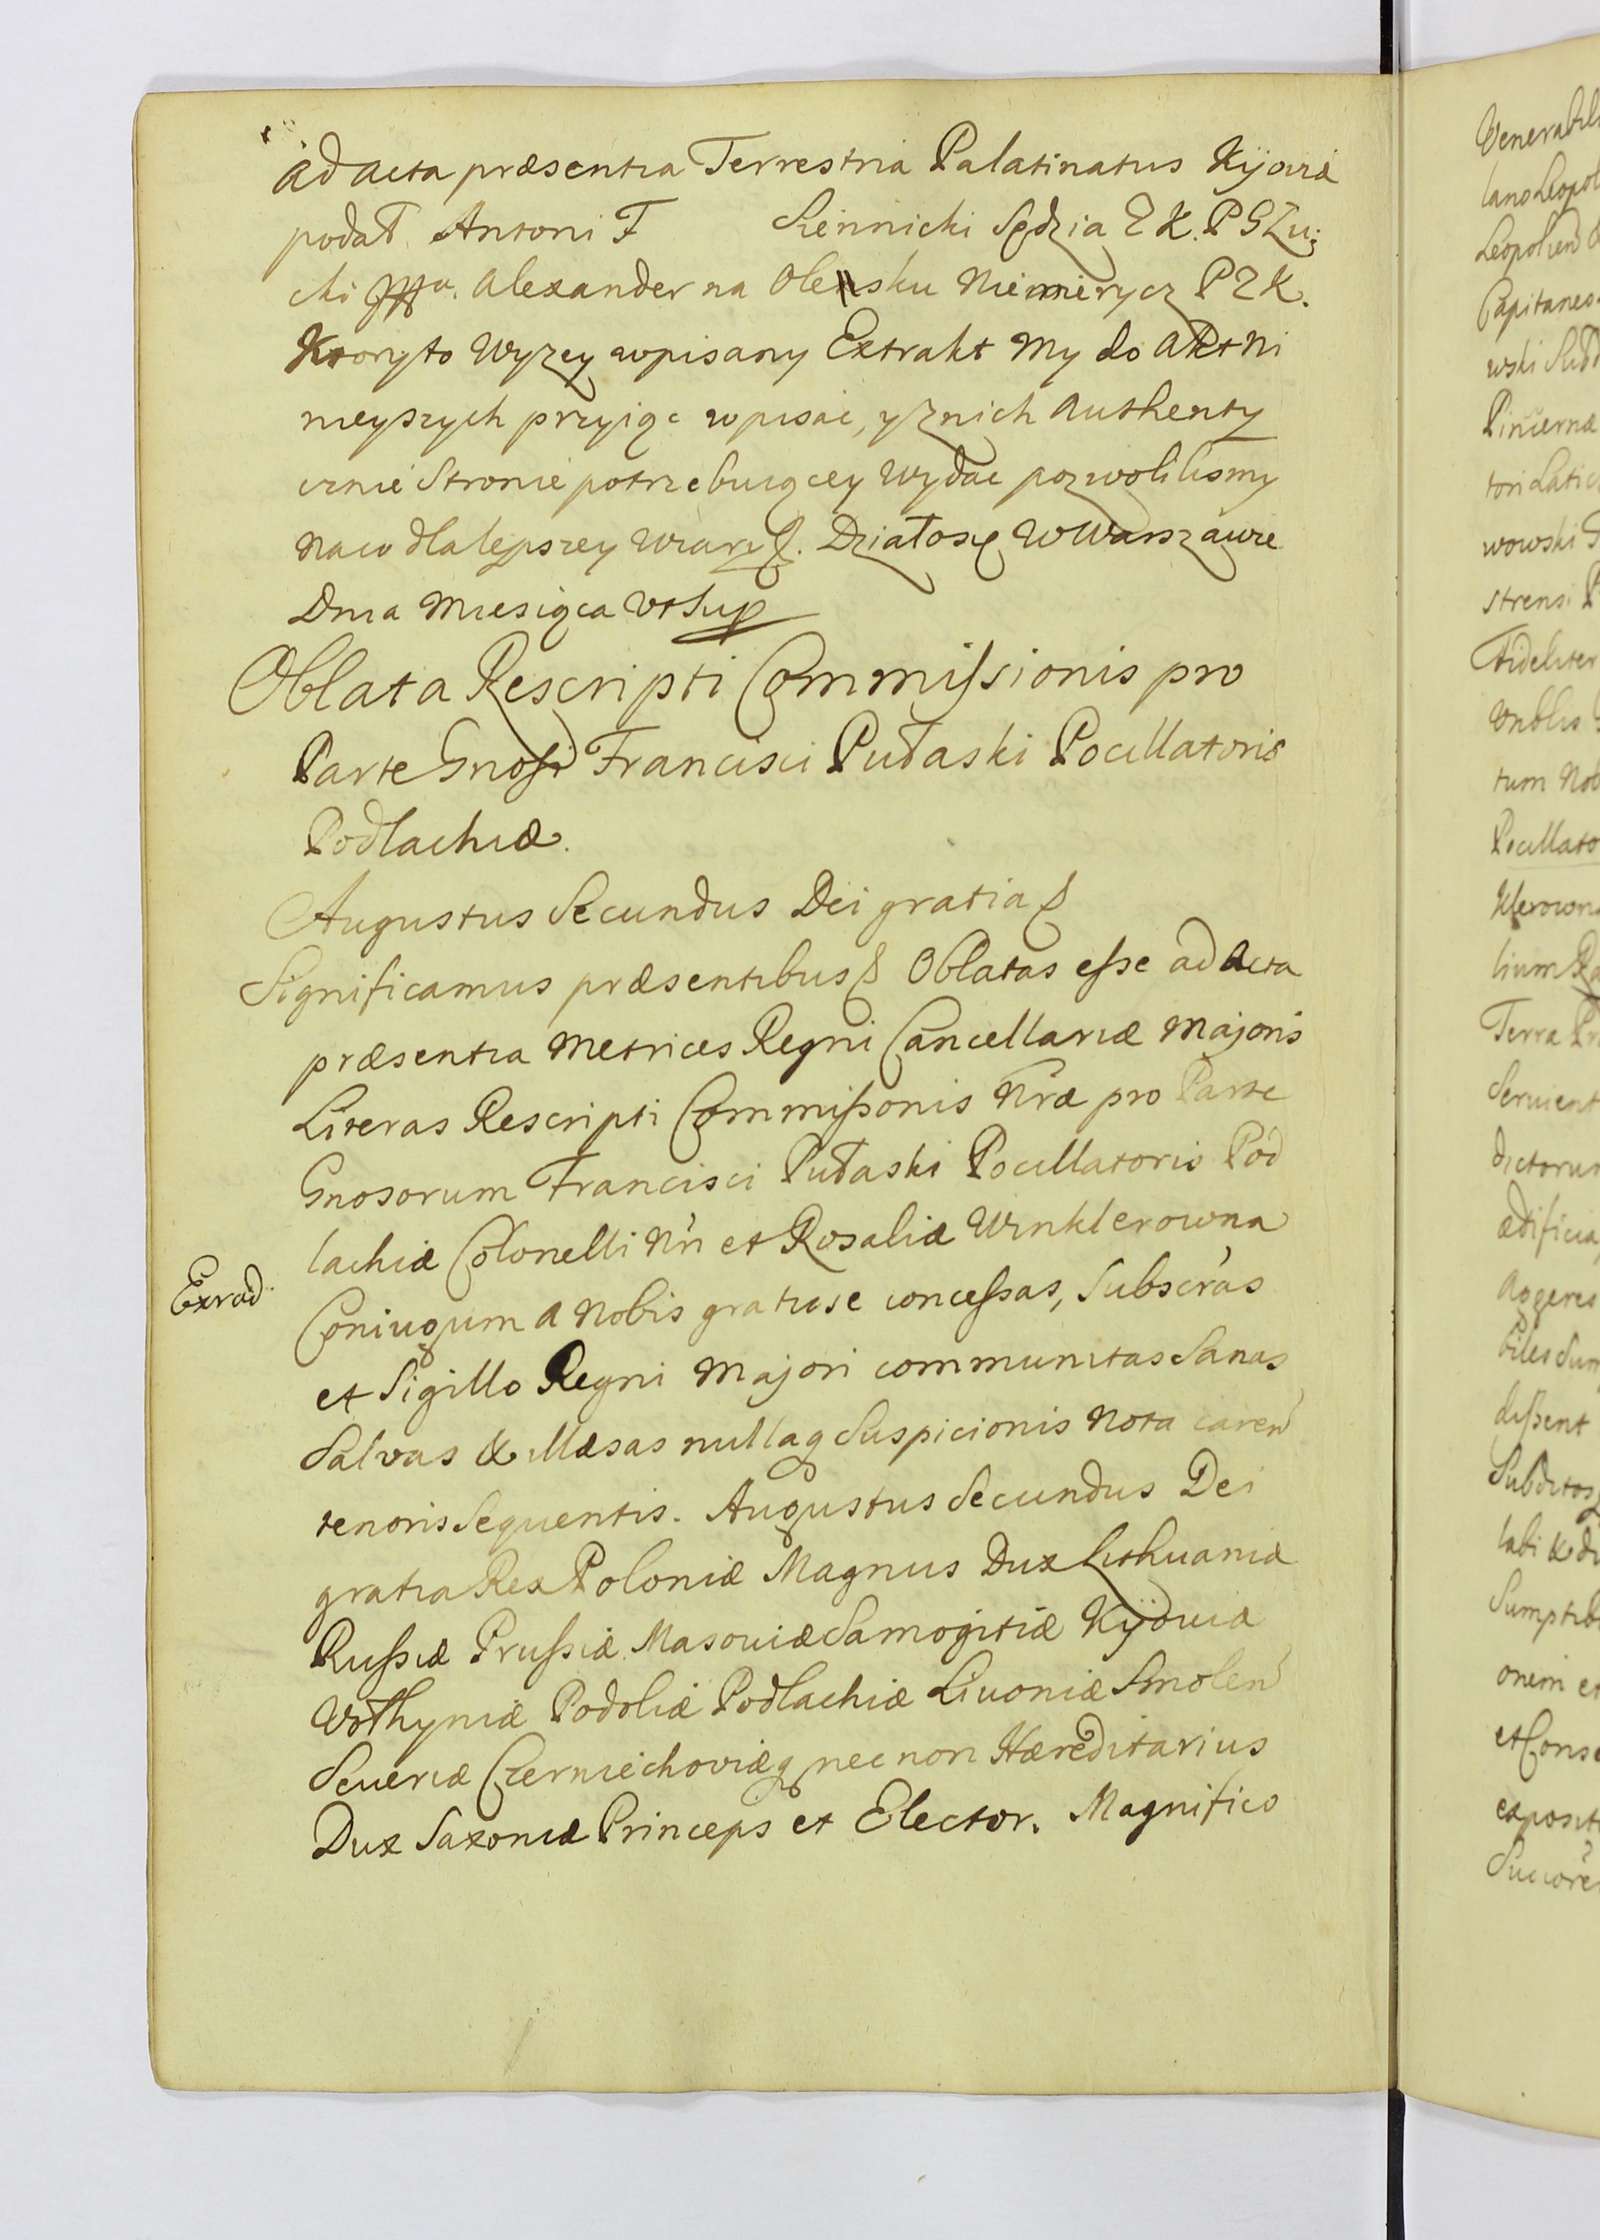 ad acta præsentia Terrestria Palatinatus Kijoviæ
podał Antoni F Kiennicki Sędzia Z K. P G Łu:
cki Alexander na Olensku Niemierycz P Z K.
Ktoryto Wyzey wpisany Extrakt My do Akt Ni
nieyszych przyiąc wpisać, y z nich Authenty
cznie Stronie potrzebuiącey Wydać pozwolilismy
Na co dla lepszey wiary &. Działo się w Warszawie
Dnia Miesiąca Vt Sup
Oblata Rescripti Commissionis pro
Parte Gnosi Francisci Pułaski Pocillatoris
Podlachiæ.
Augustus Secundus Dei gratia &
Significamus præsentibus & Oblatas esse ad Acta
præsentia Metrices Regni Cancellariæ Majoris
Literas Rescripti Commissionis Nræ pro Parte
Gnosorum Francisci Pułaski Pocillatoris Pod
lachiæ Colonelli Nri et Rosaliæ Winklerowna
Exrad.
Coniugum a Nobis gratiose concessas, Subscras
et Sigillo Regni Majori communitas Sanas
Salvas & Illæsas nullaq Suspicionis Nota caren
tenoris Sequentis. Augustus Secundus Dei
gratia Rex Poloniæ Magnus Dux Lithuaniæ
Russiæ Prussiæ Masoviæ Samogitiæ Kijoviæ
Volhyniæ Podoliæ Podlachiæ Livoniæ Smolen
Severiæ Czerniechoviæq nec non Hæreditarius
Dux Saxoniæ Princeps et Elector. Magnifico
Venerabil
Leopolien
Capitaneo
wski
Pincernæ
wowski G
strensi P
Fideliter
tum Nob
Pocillato
Terra Pr
Servient
dictorum
ædificia
Aggeres
Subditos
Sumptib
onem et
et Conse
exposit